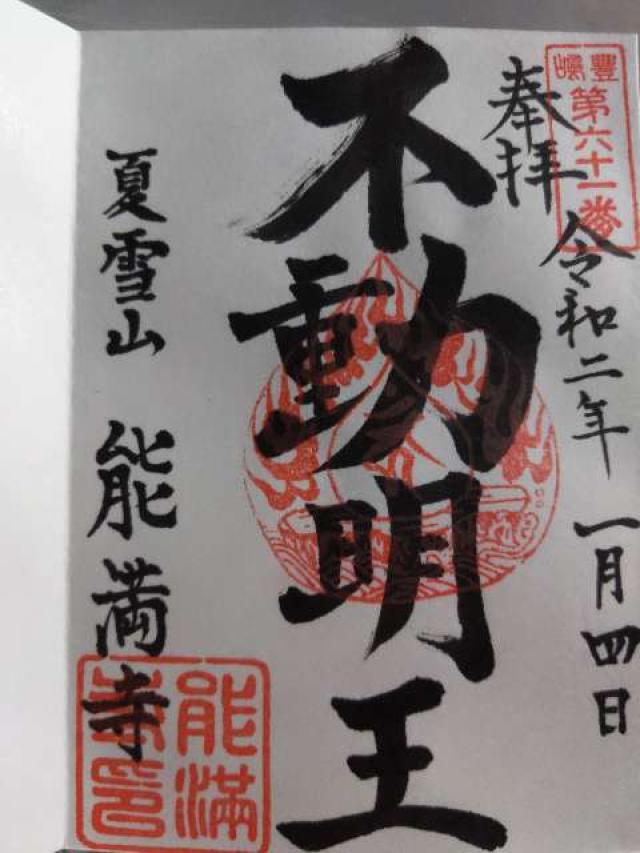 豊嶋
第六十一番
奉拝
令和二年一月四日
不動明王
夏雪山 能満寺
能満
寺印